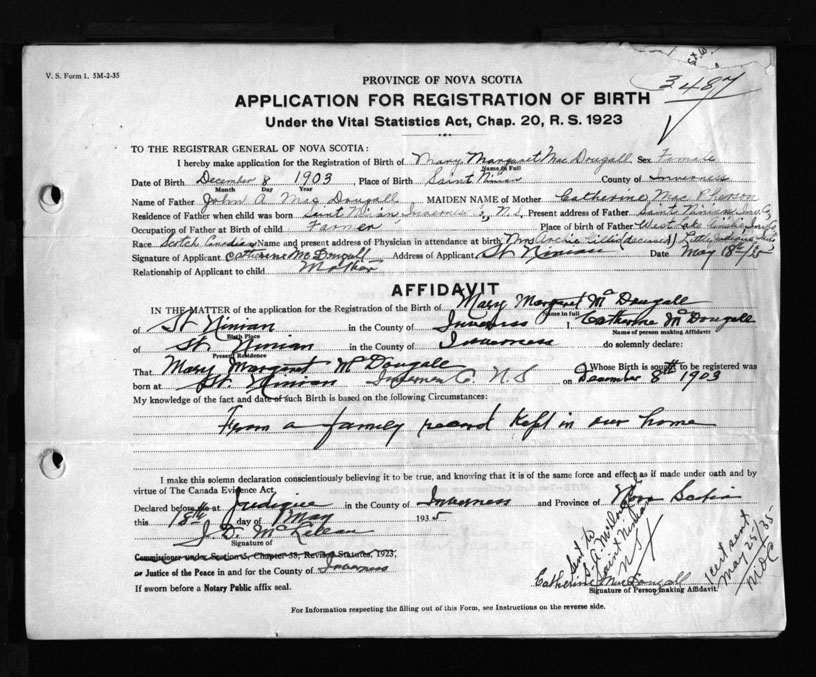 V. S. Form 1. 5M-2-35
3487
PROVINCE OF NOVA SCOTIA
APPLICATION FOR REGISTRATION OF BIRTH
Under the Vital Statistics Act, Chap. 20, R. S. 1923
TO THE REGISTRAR GENERAL OF NOVA SCOTIA:
I hereby make application for the Registration of Birth of Mary Margaret MacDougall Sex Female
Name in Full
Date of Birth December 8 1903 Place of Birth Saint Ninian County of Inverness
Month Day Year
Name of Father John A MacDougall MAIDEN NAME of Mother Catherine MacPherson
Residence of Father when child was born Saint Ninian Inverness Co, N.S. Present address of Father Saint Ninian Inv. Co
Occupation of Father at Birth of Child Farmer Place of Birth of Father West Lake
Race Scotch Canadian Name and present address of Physician in attendance at birth Mrs Archie Gillis (deceased) Little Judique
Signature of Applicant Catherine McDougall Address of Applicant St Ninian Date May 18th/35
Relationship of Applicant to child Mother
AFFIDAVIT
IN THE MATTER of the application for the Registration of the Birth of Mary Margaret McDougall
Name in full
of St Ninian in the County of Inverness I, Catherine McDougall
Birth Place Name of person making Affidavit
of St. Ninian in the County of Inverness do solemnly declare:
Present Residence
That Mary Margaret McDougall Whose Birth is sought to be registered was
born at St. Ninian Inverness Co. N.S on December 8th 1903
My knowledge of the fact and date of such Birth is based on the following Circumstances:
From a family record kept in our home
I make this solemn declaration conscientiously believing it to be true, and knowing that it is of the same force and effect as if made under oath and by
virtue of The Canada Evidence Act,
Declared before me at Judique in the County of Inverness and Province of Nova Scotia
this 18th day of May 1935
J. D. McLellan
Signature of
Commissioner under Section 5, Chapter 38, Revised Statutes, 1923,
or Justice of the Peace in and for the County of Inverness
If sworn before a Notary Public affix seal.
Sent to
Saint Ninian
N.S.
Catherine MacDougall
Signature of Person making Affidavit.
Cert sent
May 25/35
MOC
For Information respecting the filling out of this Form, see Instructions on the reverse side.